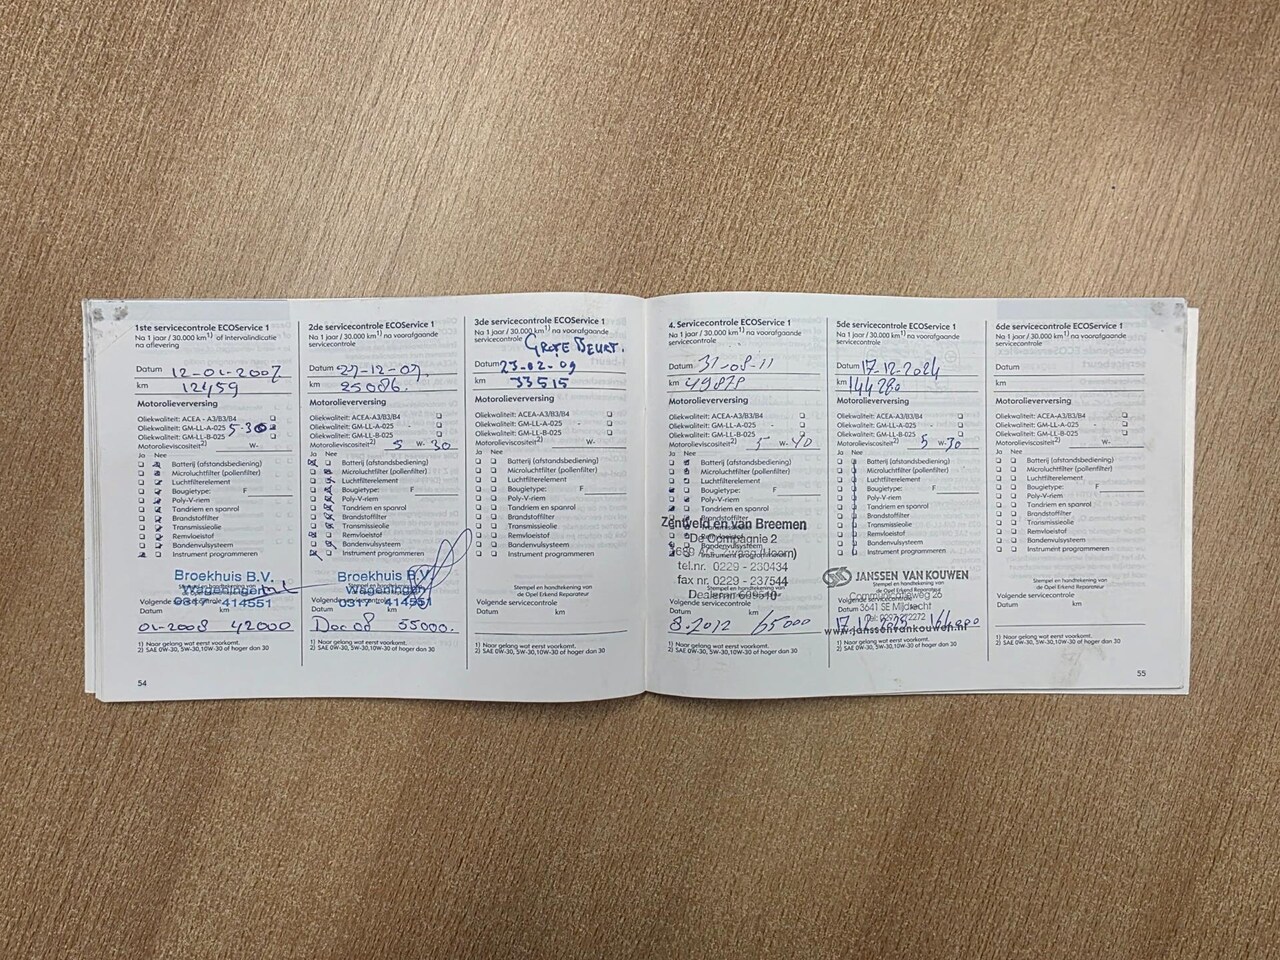 1ste servicecontrole ECOService 1
Na 1 jaar / 30.000 km1) of intervalindicatie
na aflevering
Datum 12-01-2007
km 12459
Motorolieverversing
Oliekwaliteit: ACEA - A3/B3/B4
Oliekwaliteit: GM-LL-A-025 5-30
Oliekwaliteit: GM-LL-B-025
Motorolieviscositeit2) W-
Ja Nee
Batterij (afstandsbediening)
Microluchtfilter (pollenfilter)
Luchtfilterelement
Bougietype: F
Poly-V-riem
Tandriem en spanrol
Brandstoffilter
Transmissieolie
Remvloeistof
Bandenvulsysteem
Instrument programmeren
Broekhuis B.V.
Wageningen
0317 - 414551
Volgende servicecontrole
Datum km
01-2008 42000
1) Naar gelang wat eerst voorkomt.
2) SAE 0W-30, 5W-30,10W-30 of hoger dan 30
54
2de servicecontrole ECOService 1
Na 1 jaar / 30.000 km1) na voorafgaande
servicecontrole
Datum 27-12-07.
km 25086.
Motorolieverversing
Oliekwaliteit: ACEA-A3/B3/B4
Oliekwaliteit: GM-LL-A-025
Oliekwaliteit: GM-LL-B-025
Motorolieviscositeit2) 5 W- 30
Ja Nee
Batterij (afstandsbediening)
Microluchtfilter (pollenfilter)
Luchtfilterelement
Bougietype: F
Poly-V-riem
Tandriem en spanrol
Brandstoffilter
Transmissieolie
Remvloeistof
Bandenvulsysteem
Instrument programmeren
Broekhuis B.V.
Wageningen
0317 - 414551
Volgende servicecontrole
Datum km
Dec 08 55000.
1) Naar gelang wat eerst voorkomt.
2) SAE 0W-30, 5W-30,10W-30 of hoger dan 30
3de servicecontrole ECOService 1
Na 1 jaar / 30.000 km1) na voorafgaande
servicecontrole GROTE BEURT.
Datum 23-02-09
km 33515
Motorolieverversing
Oliekwaliteit: ACEA-A3/B3/B4
Oliekwaliteit: GM-LL-A-025
Oliekwaliteit: GM-LL-B-025
Motorolieviscositeit2) W-
Ja Nee
Batterij (afstandsbediening)
Microluchtfilter (pollenfilter)
Luchtfilterelement
Bougietype: F
Poly-V-riem
Tandriem en spanrol
Brandstoffilter
Transmissieolie
Remvloeistof
Bandenvulsysteem
Instrument programmeren
Stempel en handtekening van
de Opel Erkend Reparateur
Volgende servicecontrole
Datum km
1) Naar gelang wat eerst voorkomt.
2) SAE 0W-30, 5W-30,10W-30 of hoger dan 30
4. Servicecontrole ECOService 1
Na 1 jaar / 30.000 km1) na voorafgaande
servicecontrole
Datum 31-08-11
km 49878
Motorolieverversing
Oliekwaliteit: ACEA-A3/B3/B4
Oliekwaliteit: GM-LL-A-025
Oliekwaliteit: GM-LL-B-025
Motorolieviscositeit2) 5 W- 40
Ja Nee
Batterij (afstandsbediening)
Microluchtfilter (pollenfilter)
Luchtfilterelement
Bougietype: F
Poly-V-riem
Tandriem en spanrol
Brandstoffilter
Zentveld en van Breemen
De Compagnie 2
Bandenvulsysteem
Instrument programmeren
(Hoorn)
tel.nr. 0229 - 230434
fax nr. 0229 - 237544
Dealernr 609510
Volgende servicecontrole
Datum km
8-2012 65000
1) Naar gelang wat eerst voorkomt.
2) SAE 0W-30, 5W-30,10W-30 of hoger dan 30
5de servicecontrole ECOService 1
Na 1 jaar / 30.000 km1) na voorafgaande
servicecontrole
Datum 17-12-2024
km 144280
Motorolieverversing
Oliekwaliteit: ACEA-A3/B3/B4
Oliekwaliteit: GM-LL-A-025
Oliekwaliteit: GM-LL-B-025
Motorolieviscositeit2) 5 W- 30
Ja Nee
Batterij (afstandsbediening)
Microluchtfilter (pollenfilter)
Luchtfilterelement
Bougietype: F
Poly-V-riem
Tandriem en spanrol
Brandstoffilter
Transmissieolie
Remvloeistof
Bandenvulsysteem
Instrument programmeren
JANSSEN VAN KOUWEN
Stempel en handtekening van
de Opel Erkend Reparateur
Communicatieweg 26
Volgende servicecontrole
Datum 3641 SE Mijdrecht
www.janssenvankouwen.nl
1) Naar gelang wat eerst voorkomt.
2) SAE 0W-30, 5W-30,10W-30 of hoger dan 30
6de servicecontrole ECOService 1
Na 1 jaar / 30.000 km1) na voorafgaande
servicecontrole
Datum
km
Motorolieverversing
Oliekwaliteit: ACEA-A3/B3/B4
Oliekwaliteit: GM-LL-A-025
Oliekwaliteit: GM-LL-B-025
Motorolieviscositeit2) W-
Ja Nee
Batterij (afstandsbediening)
Microluchtfilter (pollenfilter)
Luchtfilterelement
Bougietype: F
Poly-V-riem
Tandriem en spanrol
Brandstoffilter
Transmissieolie
Remvloeistof
Bandenvulsysteem
Instrument programmeren
Stempel en handtekening van
de Opel Erkend Reparateur
Volgende servicecontrole
Datum km
1) Naar gelang wat eerst voorkomt.
2) SAE 0W-30, 5W-30,10W-30 of hoger dan 30
55